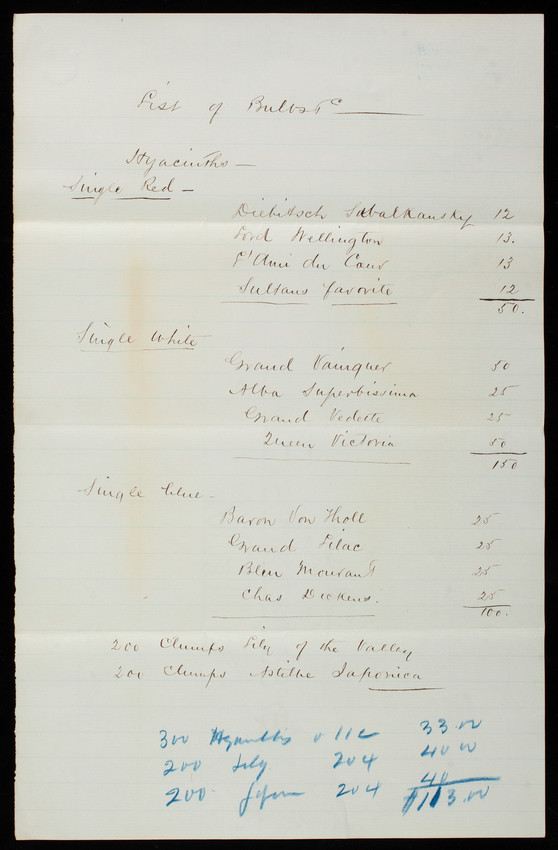 List of Bulbs &c
Hyacinths —
Single Red —
Diebitsch Sabalkansky 12
Lord Wellington 13.
L'Ami du Cœur 13
Sultans favorite 12
50.
Single White
Grand Vainquer 50
Alba Superbissima 25
Grand Vedette 25
Queen Victoria 50
150
Single blue —
Baron Von Tholl 25
Grand Lilac 25
Bleu Mourant 25
Chas Dickens. 25
100.
200 Clumps Lily of the Valley
200 Clumps Astilbe Japonica
300 Hyacinths 11c 33.00
200 Lily 20 40 00
200 Japon 20 40
$113.00